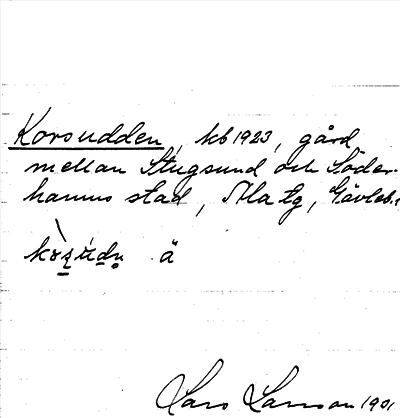 Korsudden, kb 1923, gård
mellan Stugsund och Söder-
hamns stad, Ala tg, Gävleb.
ä
Lars Larsson 1901